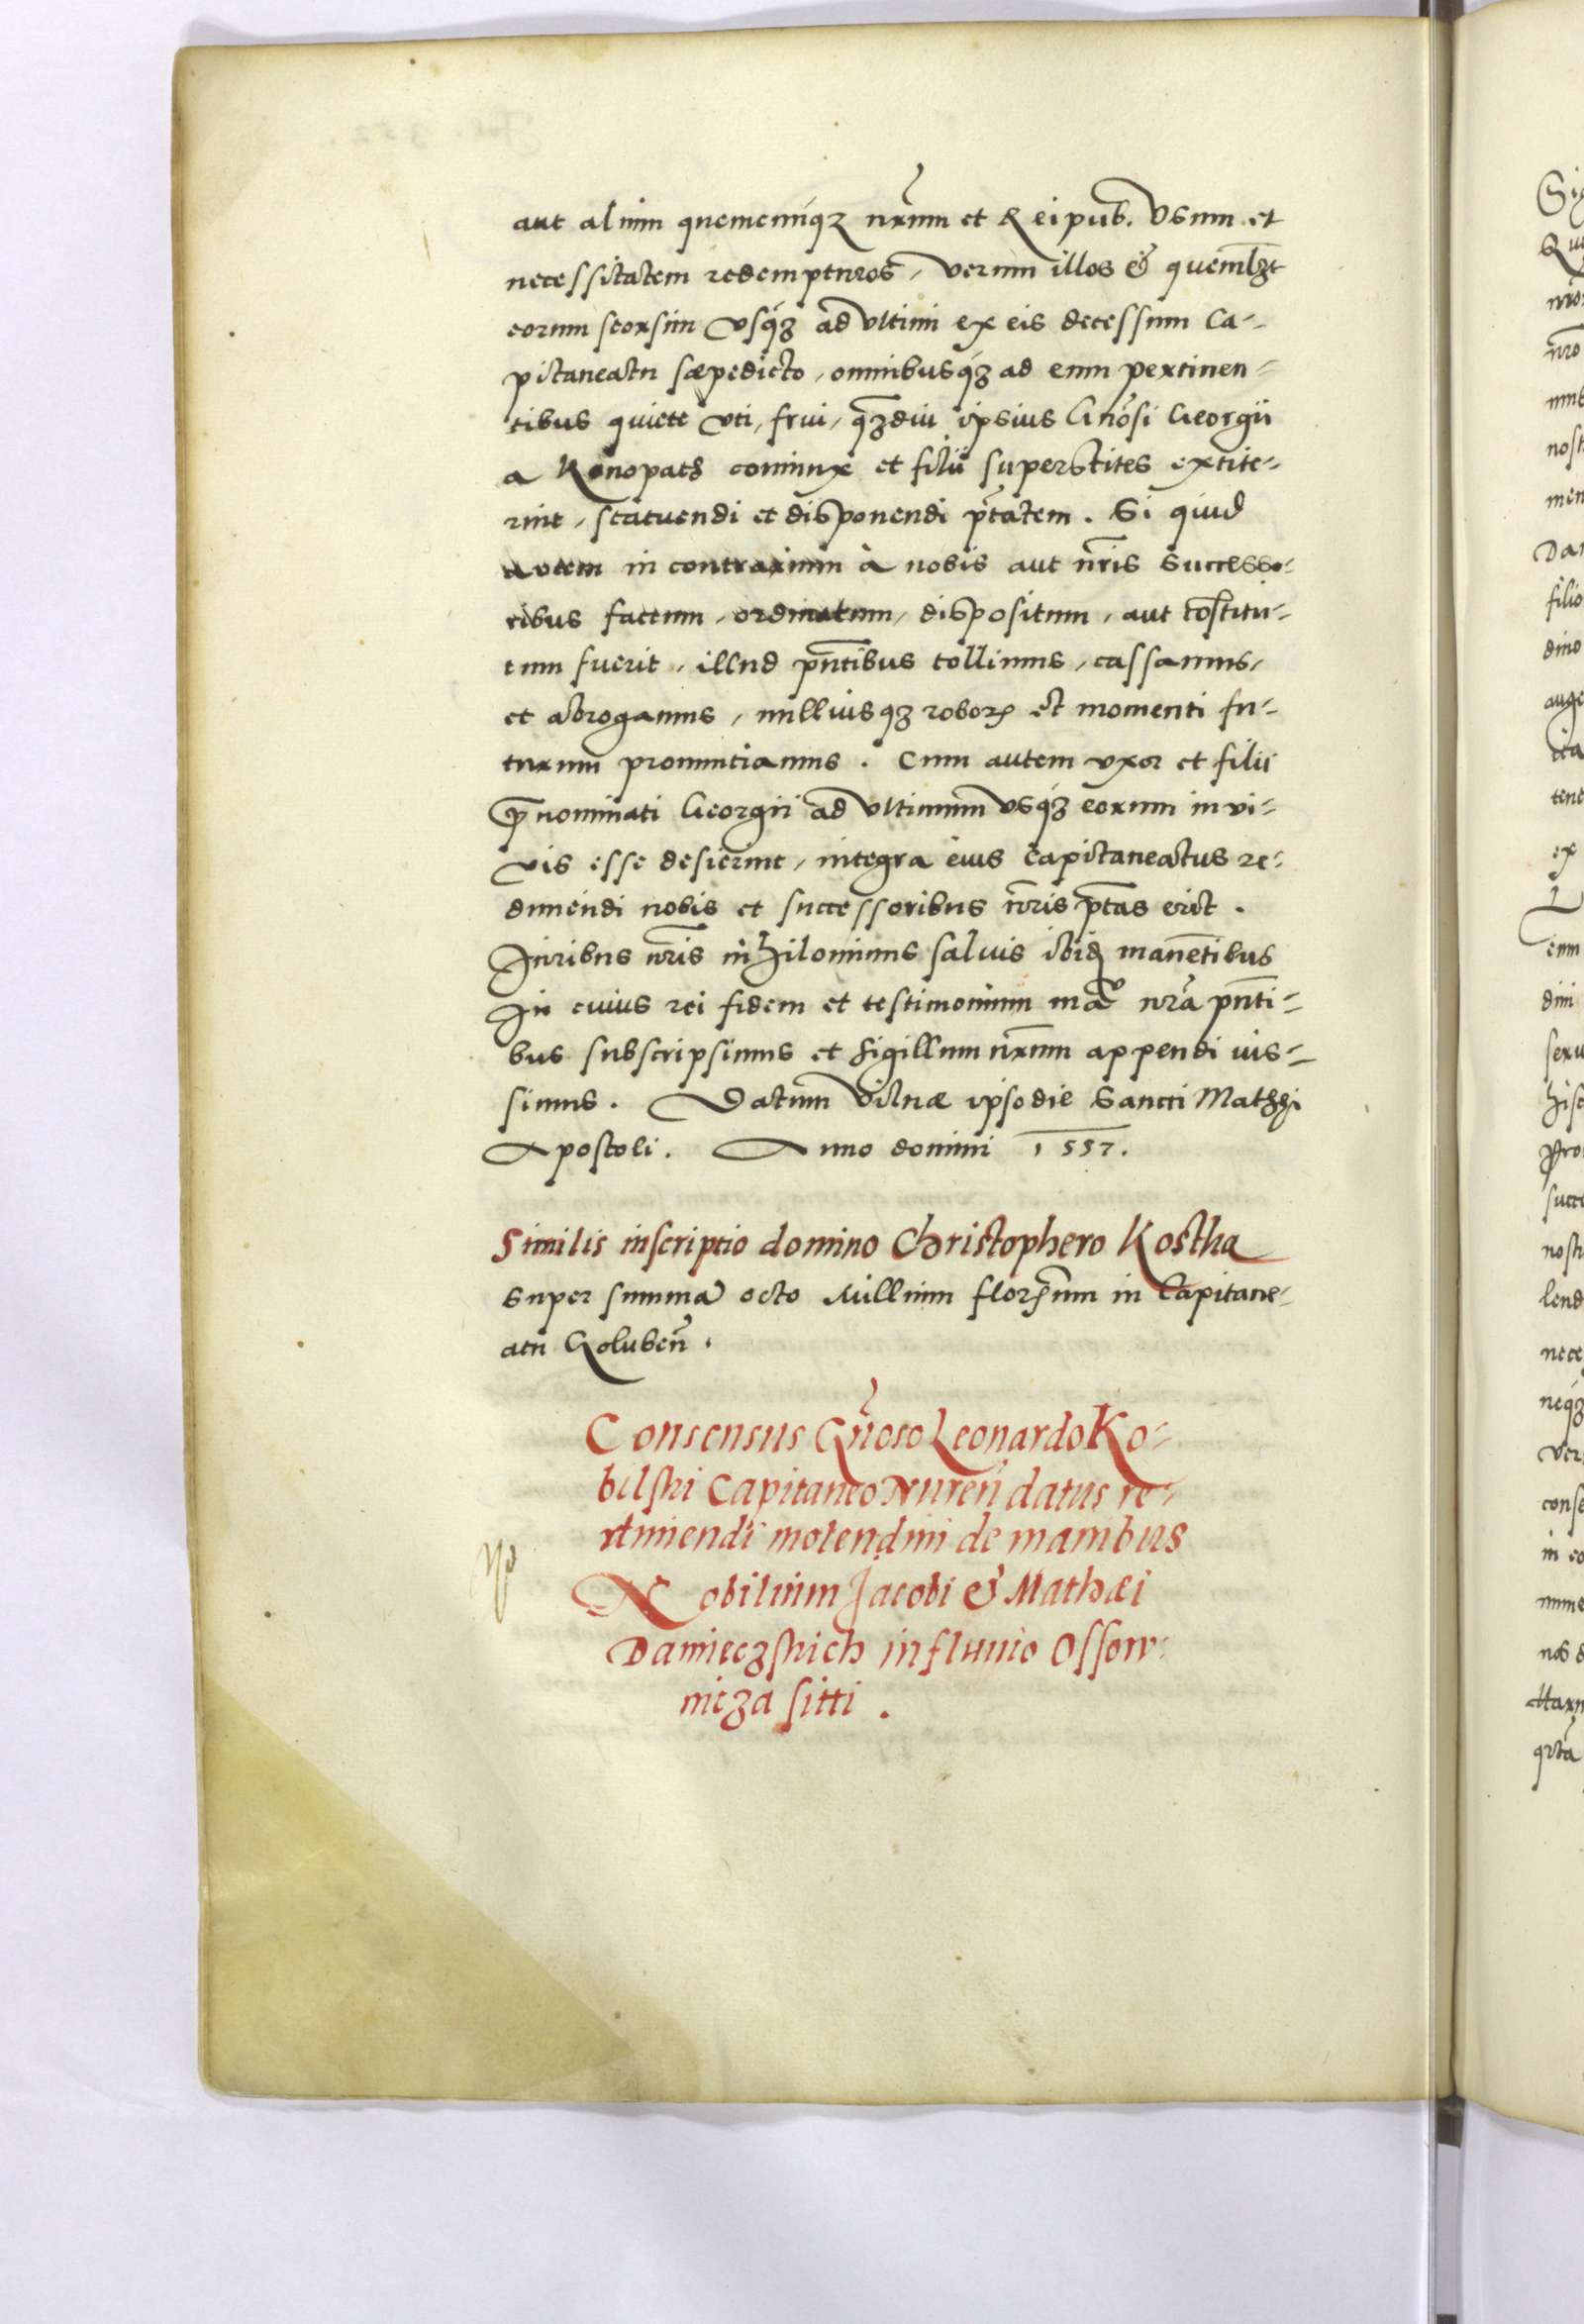 aut alium quemcunqꝫ nr̃um et Reipub. Vsum et
necessitatem redempturos, verum illos & quemlꝫt
eorum seorsim vsqꝫ ad vltimi ex eis decessum Ca-
pitaneatu sæpedicto, omnibusqꝫ ad eum pertinen-
tibus quiete vti, frui, qꝫdiu ipsius Gnõsi Georgii
a Konopath coniunx et filii superstites extite-
rint, statuendi et disponendi ptãtem. Si quid
autem in contrarium à nobis aut nr̃is successo-
ribus factum, ordinatum, dispositum, aut cõstitu-
tum fuerit, illud pñtibus tollimus, cassamus,
et abrogamus, nulliusqꝫ roboris et momenti fu-
turum pronuntiamus. Cum autem vxor et filii
prænominati Georgii ad vltimum vsqꝫ eorum in vi-
vis esse desierint, integra eius Capitaneatus re-
dimendi nobis et successoribus nr̃is ptãs erit.
Iuribus nr̃is nihilominus salvis ibidẽ manẽtibus
In cuius rei fidem et testimonium manu nrã pñti-
bus subscripsimus et sigillum nr̃um appendi ius-
simus. Datum Vilnæ ipso die Sancti Mathæi
Apostoli. Anno domini 1557.
Similis inscriptio domino Christophero Kostha
super summã octo Millium florenum in Capitane-
atu Golubeñ.
Consensus Gñoso Leonardo Ko-
bilski Capitaneo Nureñ datus re-
dimendi molendini de manibus
Nobilium Jacobi & Mathæi
Damieczskich in fluvio Ossow-
nicza sitti.